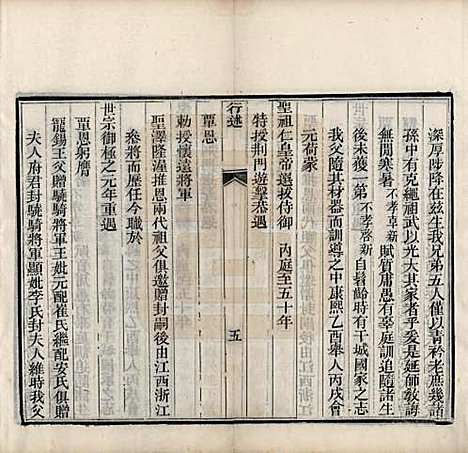 深厚陟降在兹生我兄弟五人僅以青衿老庶幾諸
孫中有克繩祖武以光大其家者乎爰是延師敎誨
無間寒暑不孝阜新賦質庸愚有辜庭訓追隨諸生
後未獲一第不孝啓新自髫齡時有干城國家之志
我父隨其材器而訓導之中康熙乙酉舉人丙戌會
元荷蒙
聖祖仁皇帝選拔侍御 內庭至五十年
特授荆門遊擊恭遇
行述
五
覃恩
敕授懷遠將軍
聖澤隆渥推恩兩代祖父俱邀贈封嗣後由江西浙江
叅將而歷任今職於
世宗御極之元年重遇
覃恩躬膺
寵錫王父贈驍騎將軍王妣元配崔氏繼配安氏俱贈
夫人府君封驍騎將軍顯妣李氏封夫人維時我父